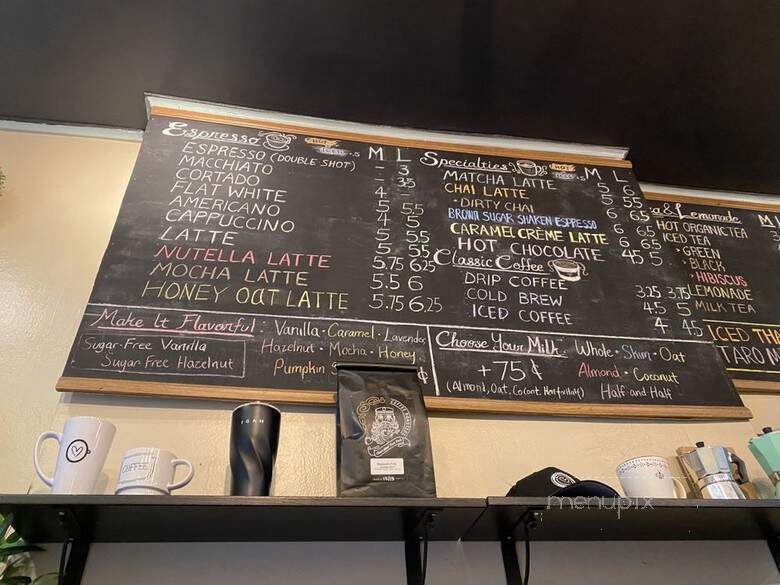 Espresso HOT ICED +.5 M L
ESPRESSO (DOUBLE-SHOT) - 3
MACCHIATO - 3.5
CORTADO 4 -
FLAT WHITE 5 5.5
AMERICANO 4 5
CAPPUCCINO 5 5.5
LATTE 5 5.5
NUTELLA LATTE 5.75 6.25
MOCHA LATTE 5.5 6
HONEY OAT LATTE 5.75 6.25
Specialties HOT M L
MATCHA LATTE 5 6
CHAI LATTE 5 5.5
• DIRTY CHAI 6 6.5
BROWN SUGAR SHAKEN ESPRESSO 6 6.5
CARAMEL CRÈME LATTE 6 6.5
HOT CHOCOLATE 4.5 5
Classic Coffee
DRIP COFFEE 3.25 3.75
COLD BREW 4.5 5
ICED COFFEE 4 4.5
Make It Flavorful: Vanilla • Caramel • Lavender
Hazelnut • Mocha • Honey
Pumpkin
Sugar-Free Vanilla
Sugar-Free Hazelnut
Choose Your Milk: Whole • Skim • Oat
Almond • Coconut
Half-and-Half
+75¢
(Almond, Oat, Coconut, Half n Half)
& Lemonade M
HOT ORGANIC TEA
ICED TEA
• GREEN
• BLACK
• HIBISCUS
LEMONADE
MILK TEA
ICED THA
TARO
COFFEE
menupix